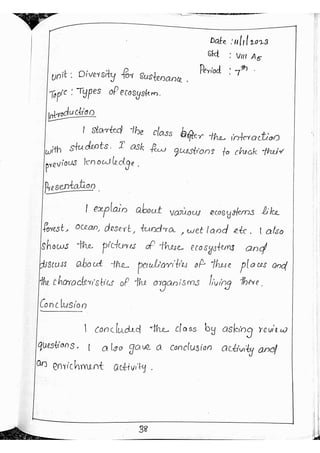 Date : 11/1/2023
Std : VIII A5
Period : 7th.
Unit : Diversity for Sustenance.
Topic : Types of ecosystem.
Introduction
I started the class after the interaction
with students. I ask few questions to check their
previous knowledge.
Presentation
I explain about various ecosystems like
forest, ocean, desert, tundra, wet land etc. I also
shows the pictures of these ecosystems and
discuss about the peculiarities of these places and
the characteristics of the organisms living there.
Conclusion
I concluded the class by asking review
questions. I also gave a conclusion activity and
an enrichment activity.
38